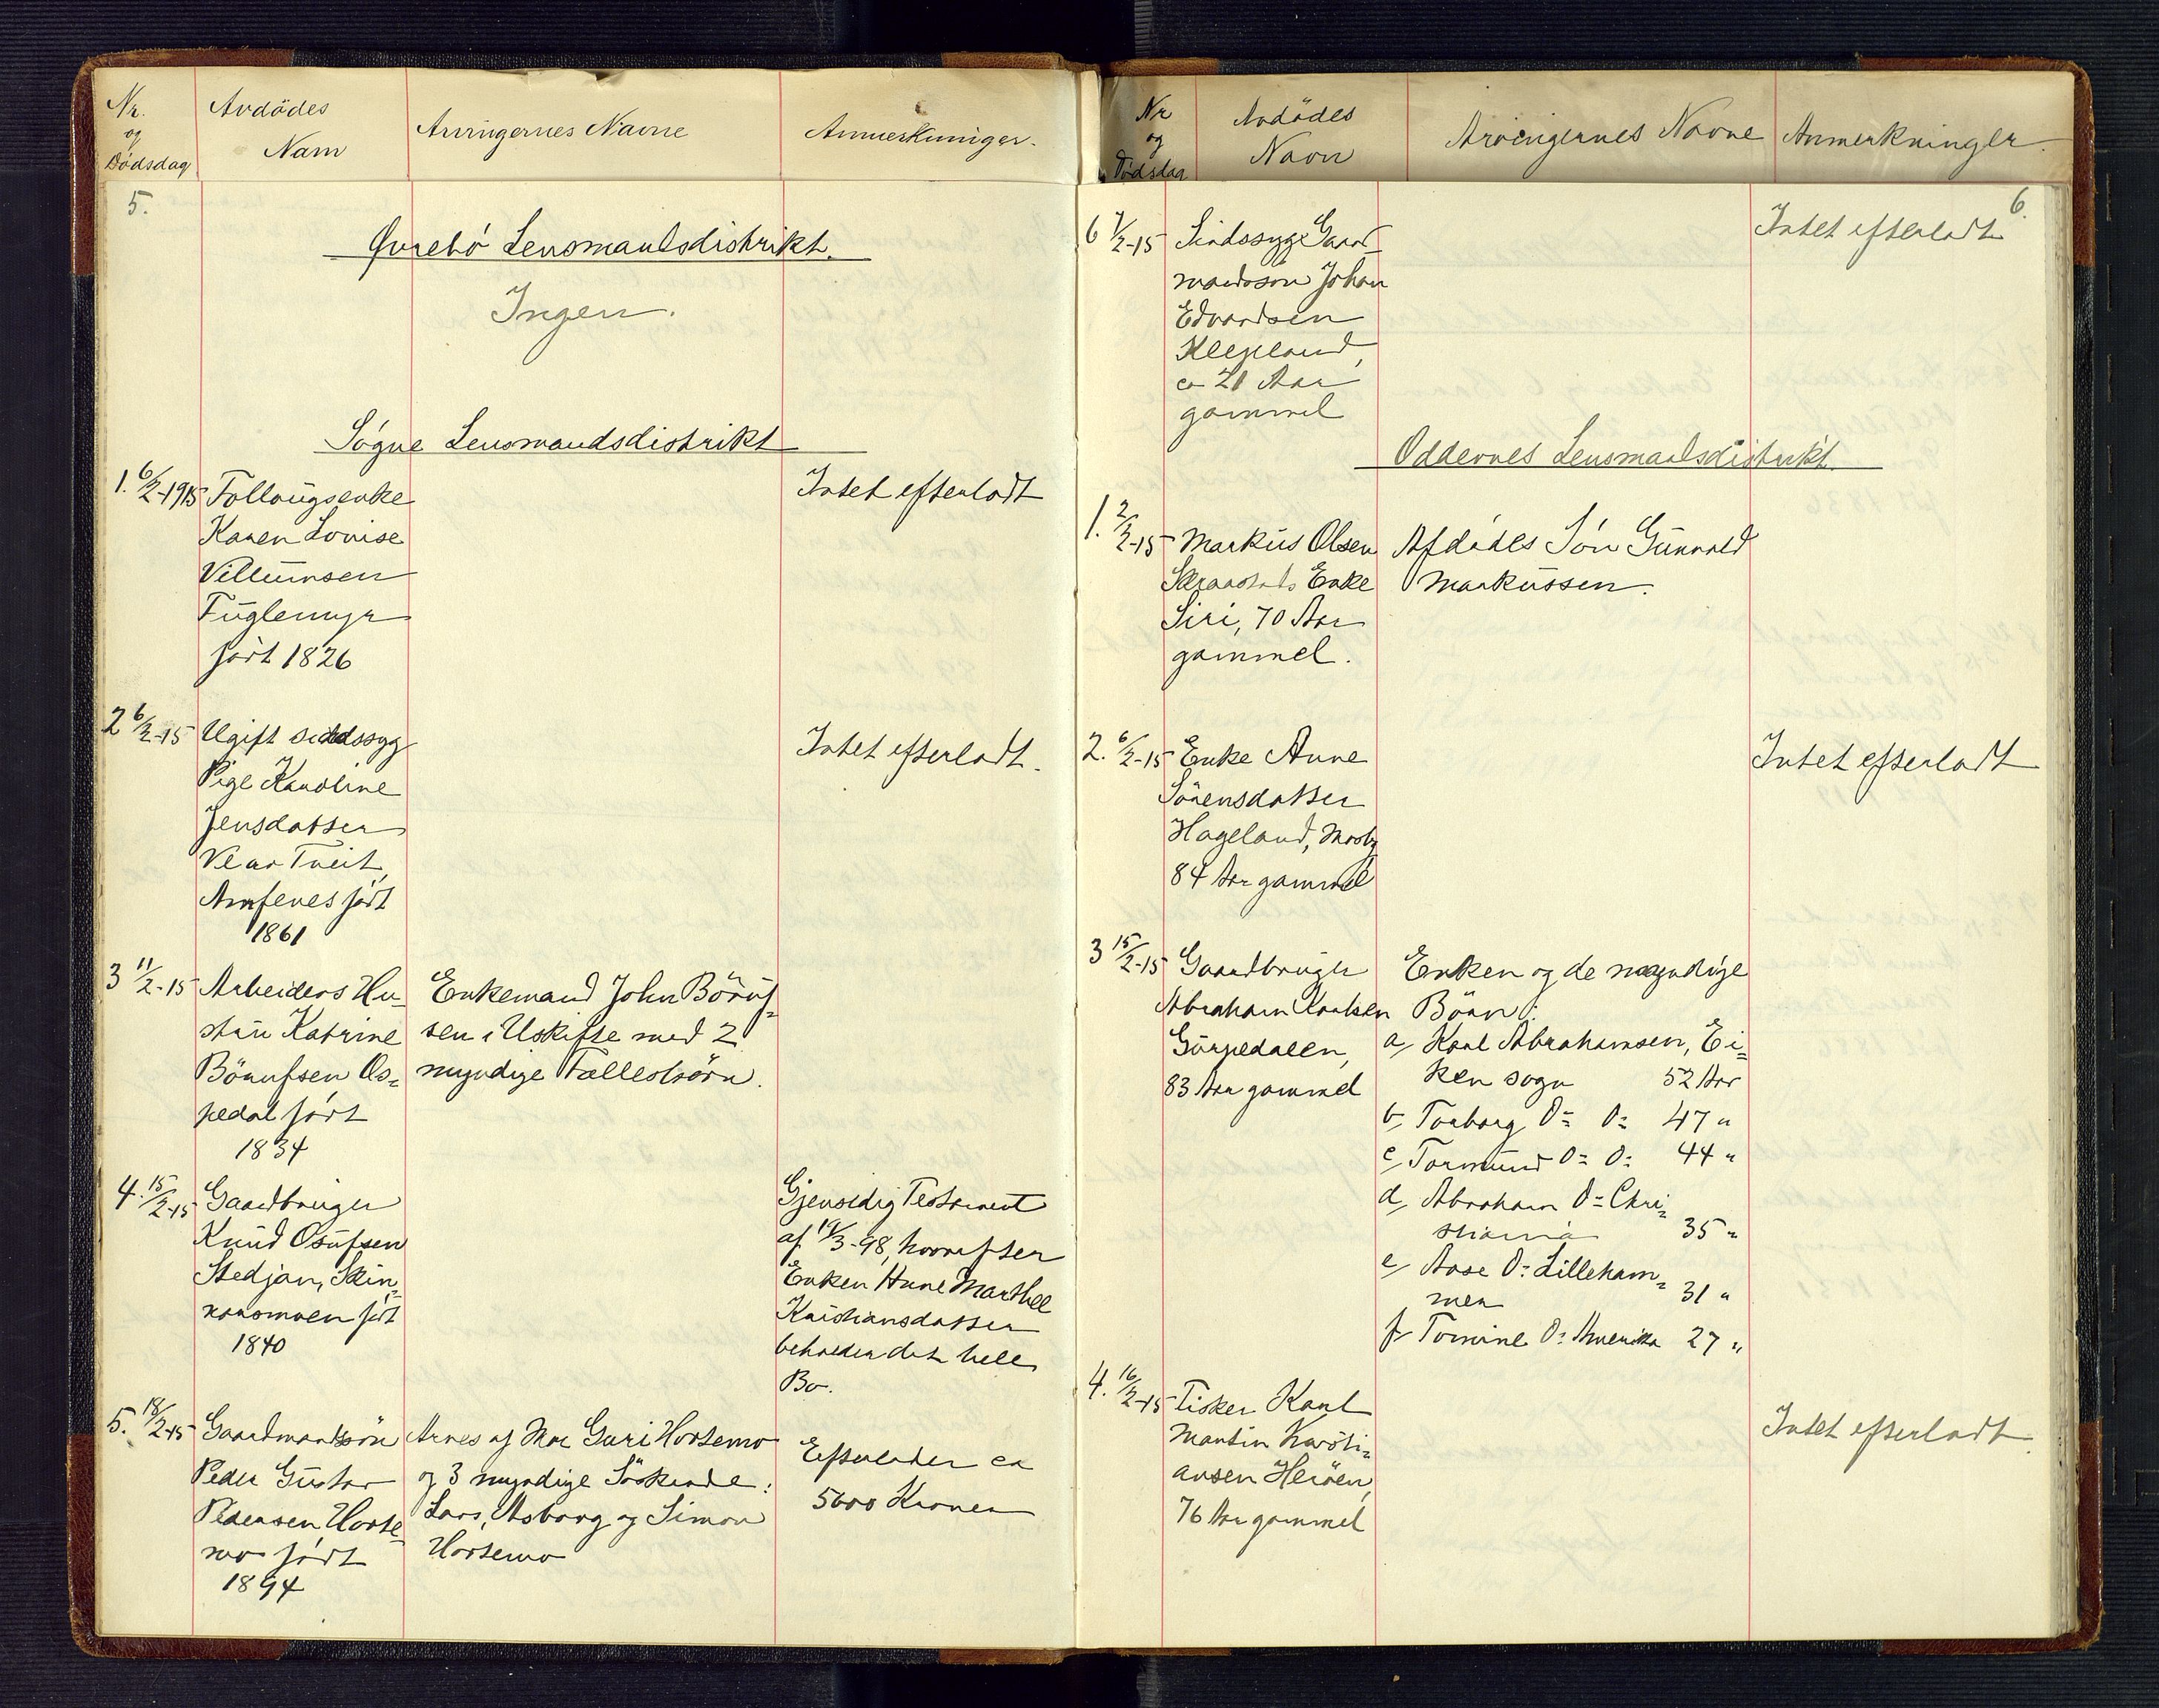 Nr.
og
Dödsdag
Avdödes
Navn
Arvingernes Navne
Anmerkninger.
5.
Øvrebó Lensmandsdistrikt.
Ingen.
Søgne Lensmandsdistrikt
1. 6/2-1915 Follougsenke
Karen Lovise
Villumsen
Fuglemyr
født 1826
Intet efterladt
2 6/2-15 Ugift sindssyg
Pige Karoline
Jensdatter
Tveit,
født
1861
Intet efterladt.
3 11/2-15 Arbeiders Hu-
stru Katrine
Börufsen Os=
pedal født
1834
Enkemand John Böruf=
sen i Uskifte med 2
myndige Fællesbörn.
4. 15/2-15 Gaardbruger
Knud Osufsen
Stedjan, Skin=
narsmoen født
1840
Gjensidig Testament
af 19/3-98, hvorefter
Enken Anne Marthe
Kristiansdatter
beholder det hele
Bo.
5. 18/2-15 Gaardmandssön
Peder Gustav
Pedersen Horte=
mo født
1894
Arves af Mor Guri Hortemo
og 3 myndige Söskende:
Lars, Asborg og Simon
Hortemo
Efterlader ca
5600 Kroner
Nr
og
Dödsdag
Avdödes
Navn
Arvingernes Navne
Anmerkninger.
6.
6 7/2-15 Sindssyge Gaard
mandssön Johan
Edvardsen
Klepland,
ca 21 Aar
gammel
Intet efterladt
Oddernes Lensmandsdistrikt.
1. 2/2-15 Markus Olsen
Skraastads Enke
Siri, 70 Aar
gammel.
Afdödes Sön Gunvald
Markussen.
2. 6/2-15 Enke Anne
Sörensdatter
Hageland, Mosby
84 Aar gammel
Intet efterladt
3 15/2-15 Gaardbruger
Abraham Knutsen
Gurpedalen,
83 Aar gammel
Enken og de myndige
Börn:
a, Karl Abrahamsen, Ei=
ken sogn 52 Aar
b, Torborg D= D= 47 "
c, Tormund D= D: 44 "
d, Abraham D= Chri=
stiania 35 "
e, Aase D: Lilleham=
mer 31 "
f, Tomine D: Amerika 27 "
4. 16/2-15 Fisker Karl
Martin Kristi=
ansen Heröen,
76 Aar gammel
Intet efterladt.